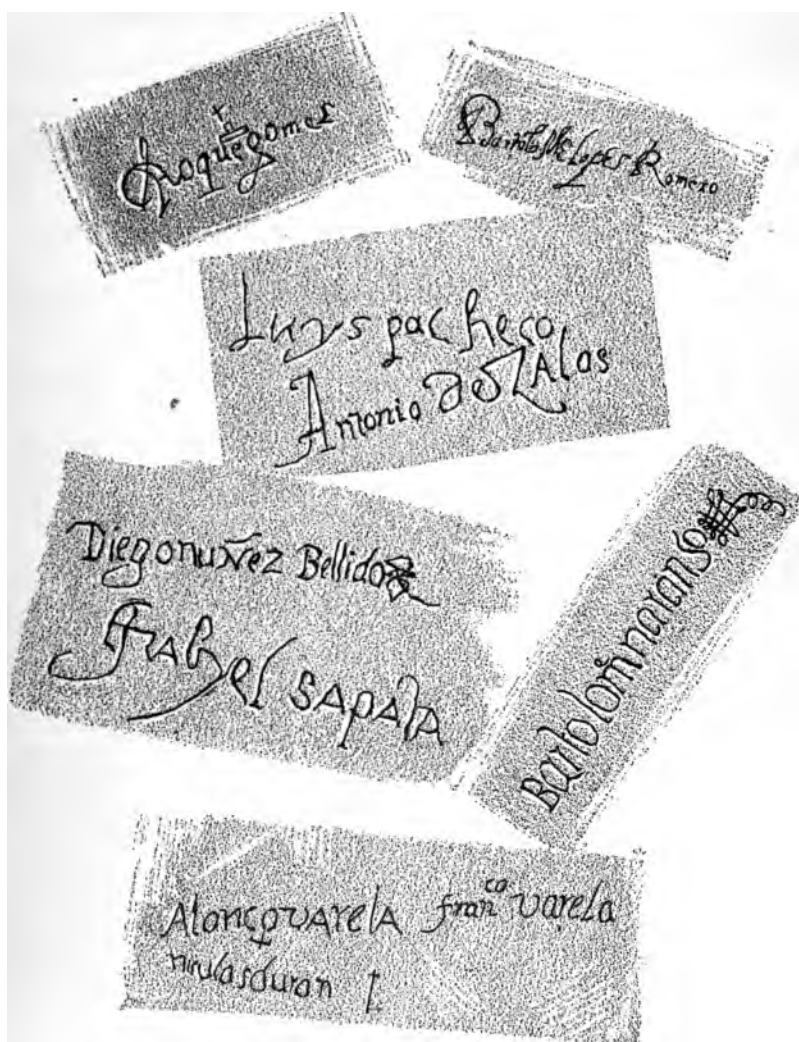 Roque gomes
Bartolome Lopes Romero
Luys pacheco
Antonio de Zalas
Diego nuñez Bellido
Bartolome narango
sapata
Alonço varela franco varela
niculas duran